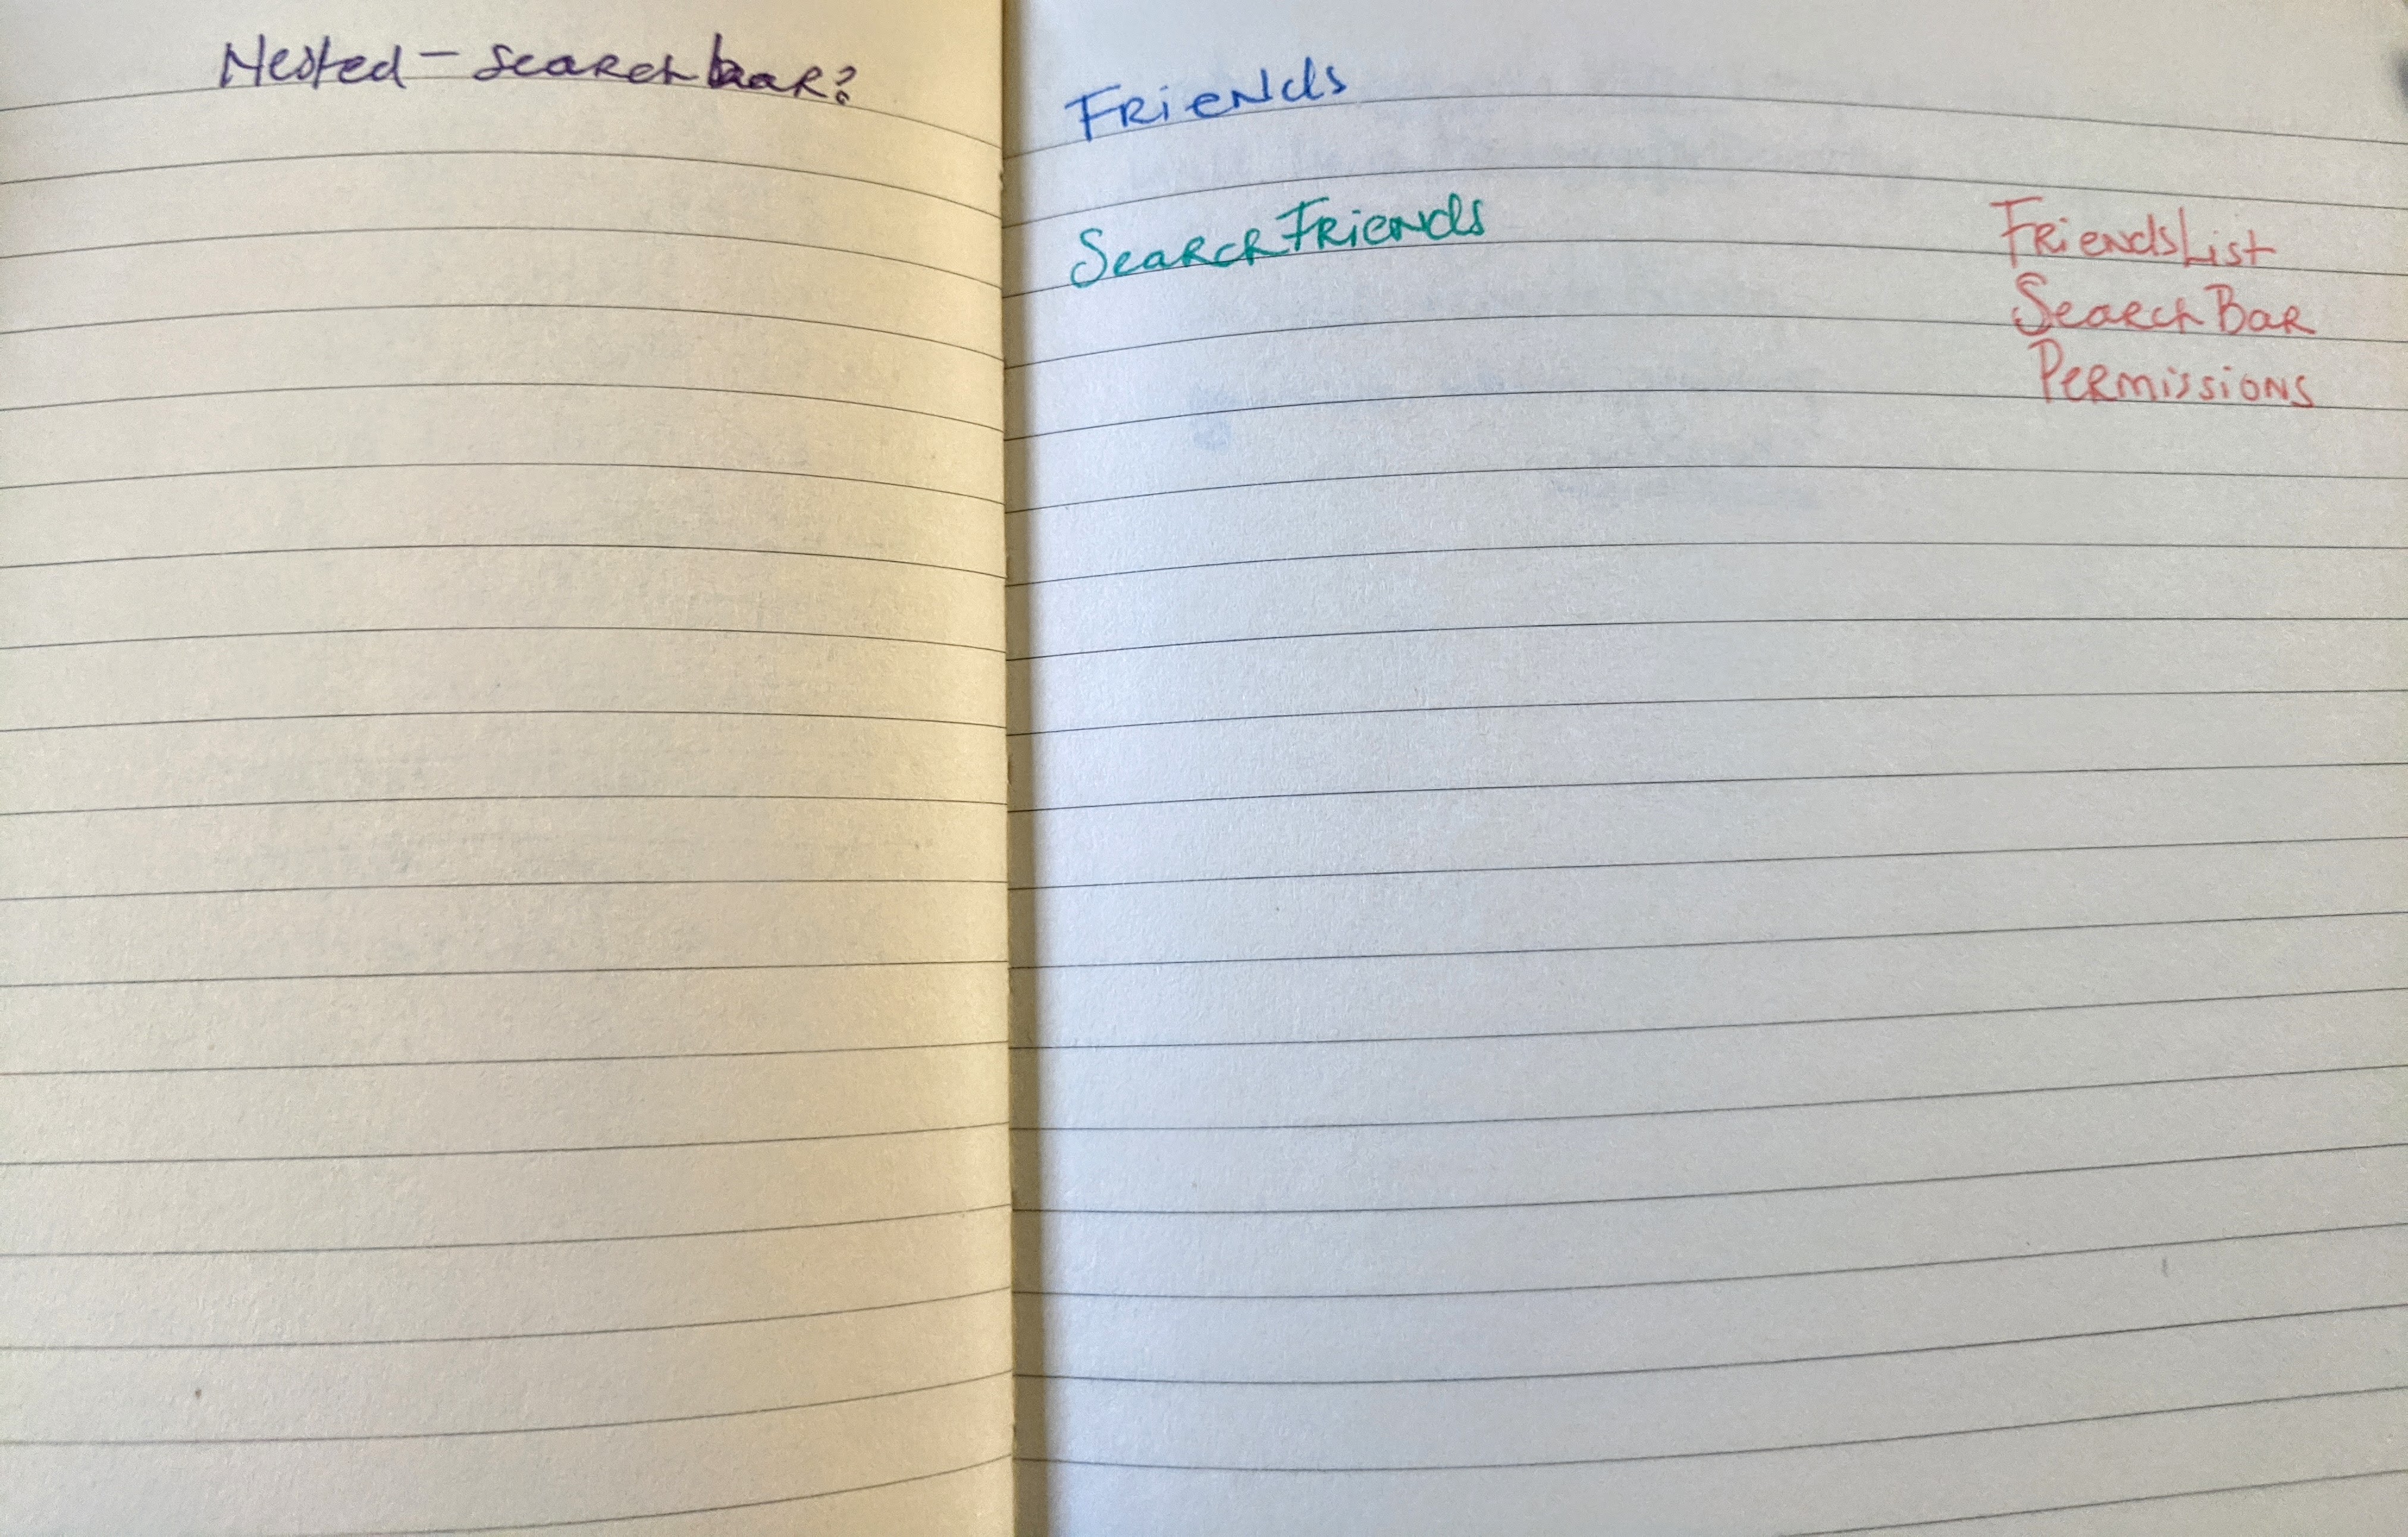 Nested - searchbar?
Friends
SearchFriends
FriendsList
SearchBar
Permissions